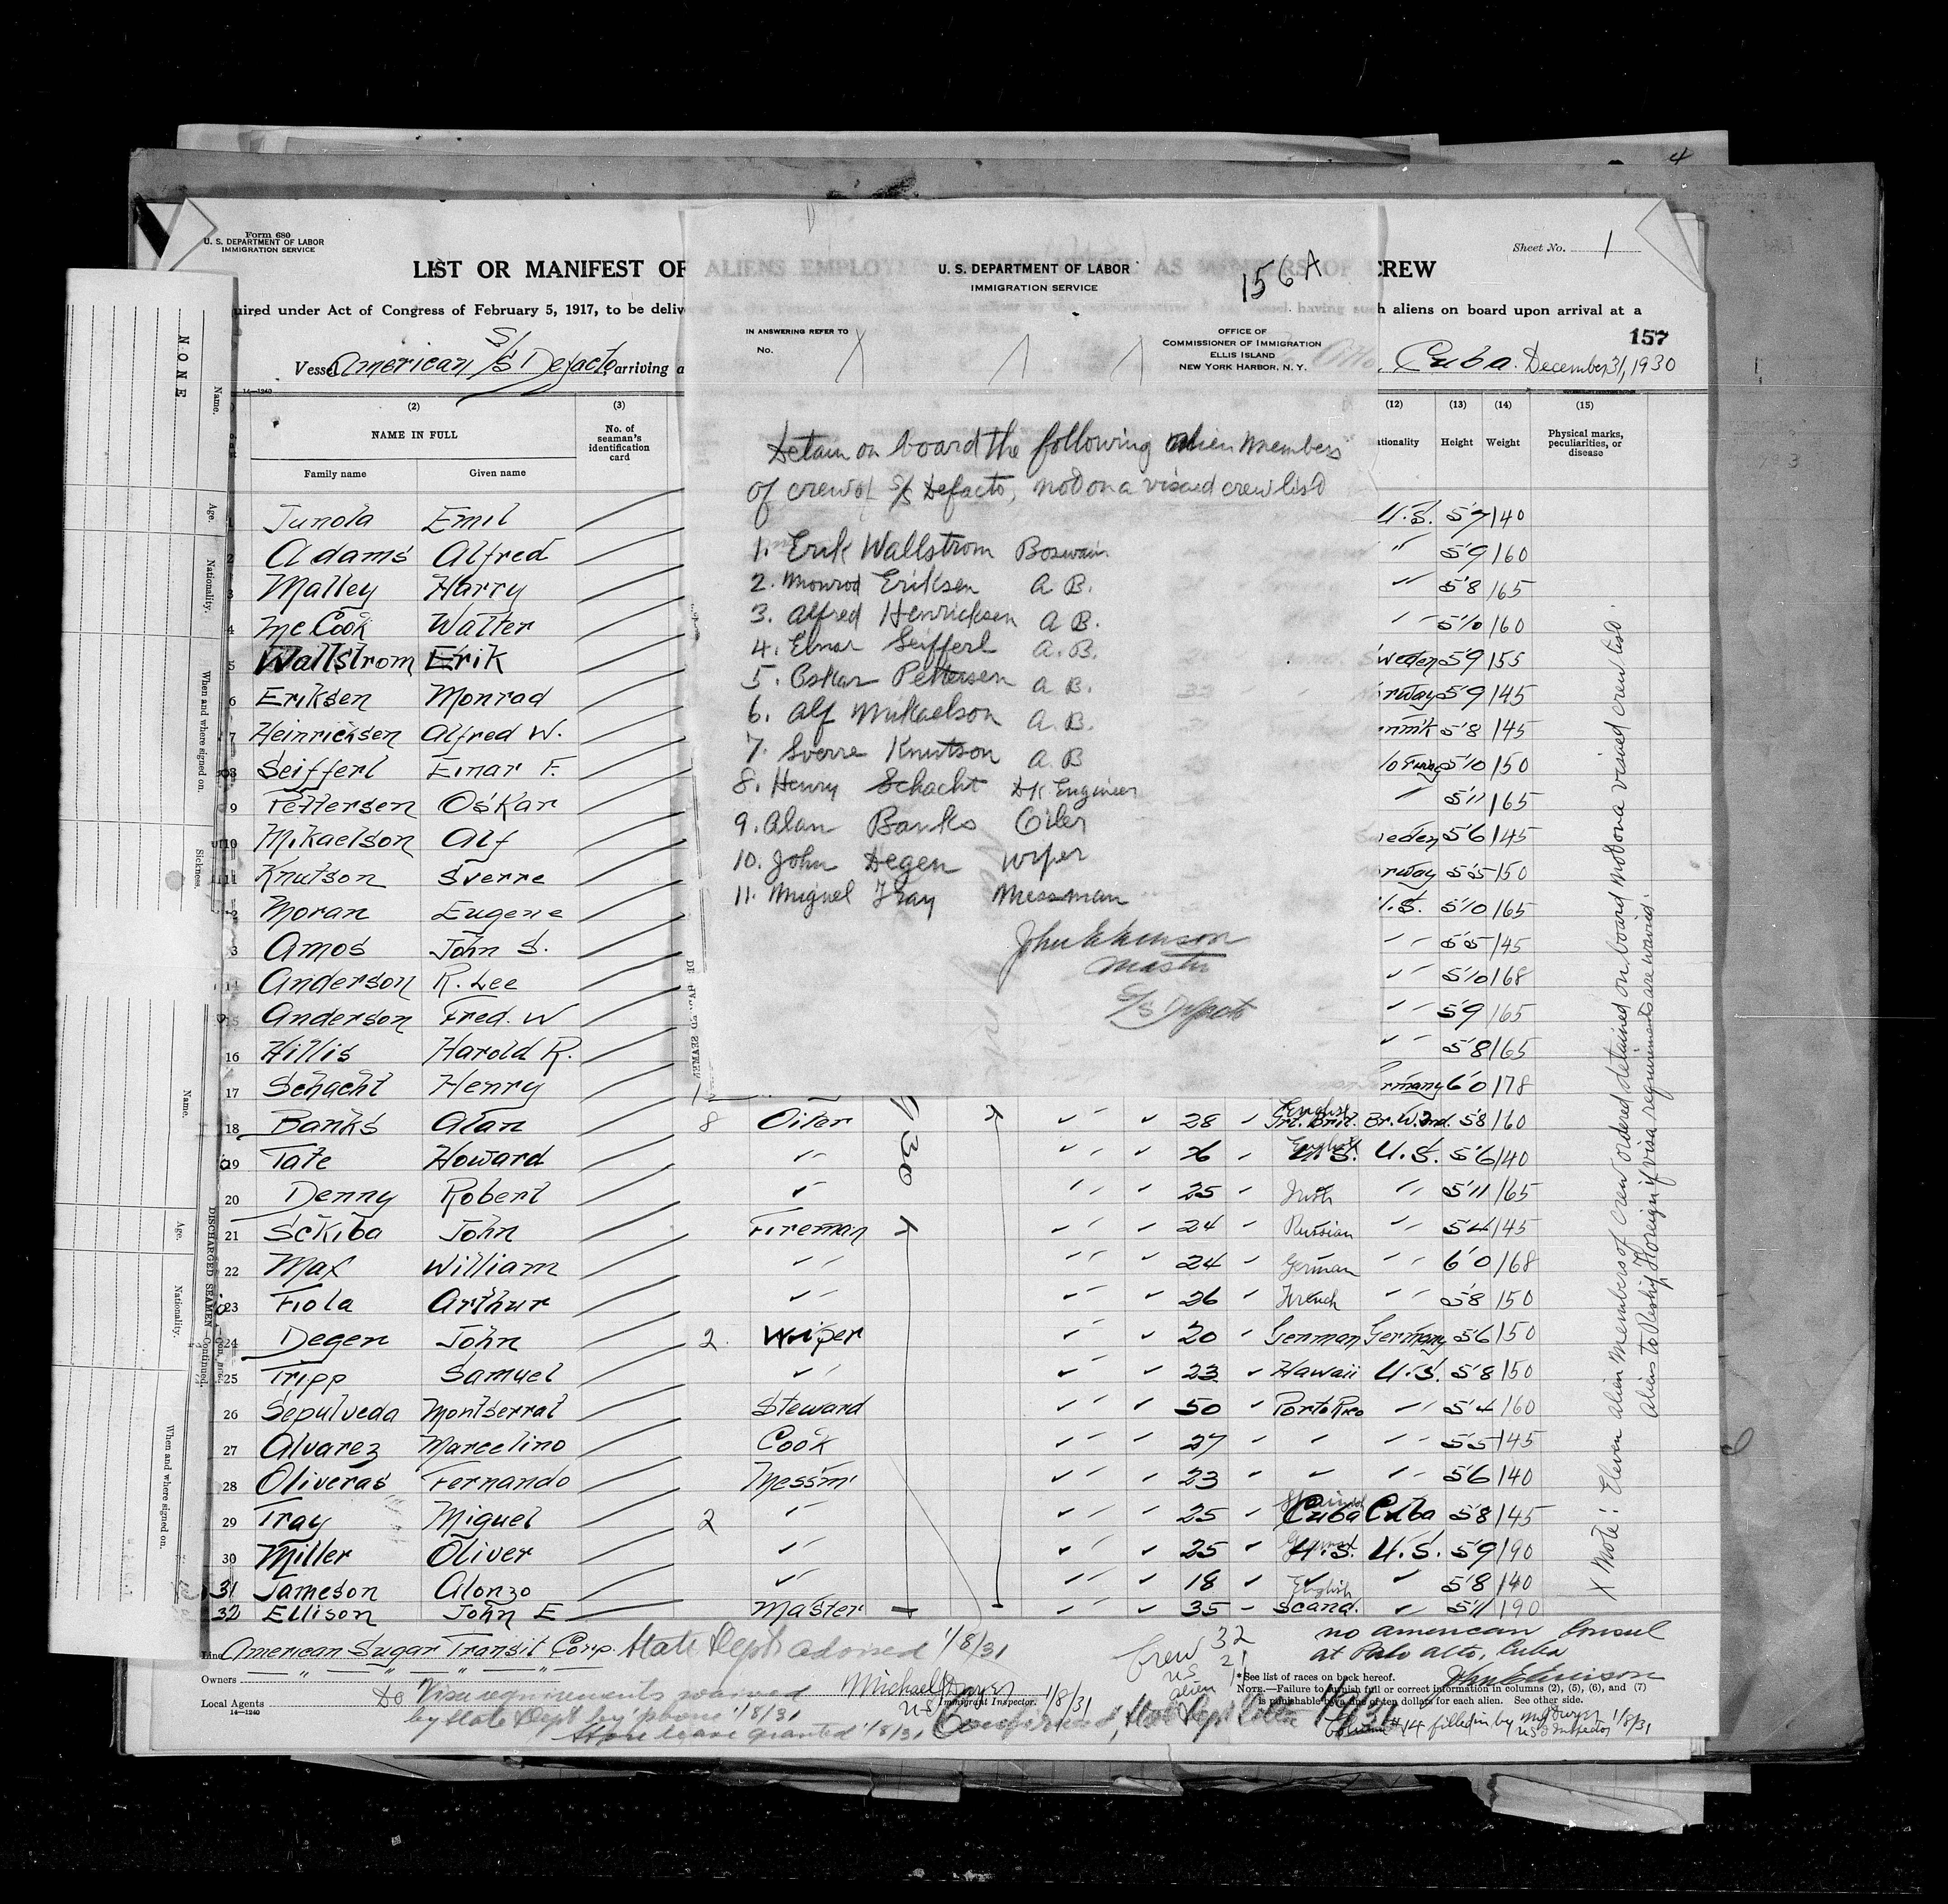 4
Form 680
U. S. DEPARTMENT OF LABOR
IMMIGRATION SERVICE
Sheet No. 1
LIST OR MANIFEST OF ALIENS EMPLOYED ON THE VESSEL AS MEMBERS OF CREW
uired under Act of Congress of February 5, 1917, to be deliv
having such aliens on board upon arrival at a
157
Vessel American S/S Defacto, arriving a
Cuba. December 31, 1930
14—1240
(2)
(3)
(12) (13) (14) (15)
NAME IN FULL
No. of seaman's identification card
Family name Given name
ationality Height Weight Physical marks, peculiarities, or disease
U. S. DEPARTMENT OF LABOR
IMMIGRATION SERVICE
156A
IN ANSWERING REFER TO
No.
OFFICE OF
COMMISSIONER OF IMMIGRATION
ELLIS ISLAND
NEW YORK HARBOR, N. Y.
Detain on board the following alien members
of crew of S/S Defacto, not on a visaed crew list
1. Erik Wallstrom Boswain.
2. Monrod Eriksen A B.
3. Alfred Henricksen A B.
4. Einar Seifferl A. B.
5. Oskar Pettersen A B.
6. Alf Mikaelson A. B.
7. Sverre Knutson A. B
8. Henry Schacht DK Engineer
9. Alan Banks Oiler
10. John Degen Wiper
11. Miguel Tray Messman
Master
S/S Defacto
Junola Emil U.S. 5'7 140
2 Adams Alfred " 5'9 160
3 Malley Harry " 5'8 165
4 McCook Walter " 5'10 160
5 Wallstrom Erik Sweden 5'9 155
6 Eriksen Monrod rway 5'9 145
7 Heinricksen Alfred W. nmrk 5'8 145
8 Seifferl Einar F. Norway 5'10 150
9 Pettersen Oskar " 5'11 165
10 Mikaelson Alf weden 5'6 145
11 Knutson Sverre rway 5'5 150
Moran Eugene U.S. 5'10 165
3 Amos John S. " 5'5 145
14 Anderson R. Lee " 5'10 168
15 Anderson Fred. W " 5'9 165
16 Hillis Harold R. " 5'8 165
17 Schacht Henry rmany 6'0 178
18 Banks Alan 8 Oiler 28 English Gr. Brit. Br. W. Ind. 5'8 160
19 Tate Howard " 26 English U.S. U.S. 5'6 140
20 Denny Robert " 25 Irish " 5'11 165
21 Sckiba John Fireman 24 Russian " 5'4 145
22 Max William " 24 German " 6'0 168
23 Fiola Arthur " 26 French " 5'8 150
24 Degen John 2 Wiper 20 German Germany 5'6 150
25 Tripp Samuel " 23 Hawaii U.S. 5'8 150
26 Sepulveda Montserrat Steward 50 Porto Rico " 5'4 160
27 Alvarez Marcelino Cook 27 " " 5'5 145
28 Oliveras Fernando Messm. 23 " " 5'6 140
29 Tray Miguel 2 " 25 Spanish Cuba Cuba 5'8 145
30 Miller Oliver " 25 German U.S. U.S. 5'9 190
31 Jameson Alonzo " 18 English " 5'8 140
32 Ellison John E Master 35 Scand. " 5'11 190
1930
X Note: Eleven alien members of crew ordered detained on board not on a visaed crew list.
Aliens to Reship Foreign if visa requirements are waived.
Line American Sugar Transit Corp.
State Dept advised 1/8/31
Crew 32
US 21
alien 11
no american Consul
at Palo alto, Cuba
Owners " " " " "
*See list of races on back hereof.
NOTE.—Failure to furnish full or correct information in columns (2), (5), (6), and (7)
is punishable by a fine of ten dollars for each alien. See other side.
Local Agents
14—1240
Visa requirements waived
by State Dept by phone 1/8/31
Shore leave granted 1/8/31
Michael
US Immigrant Inspector. 1/8/31
Confirmed, State Dept letter
Column #14 filled in by
US Inspector 1/8/31
NONE
Name.
Age.
Nationality.
When and where signed on.
Sickness.
DISCHARGED SEAMEN—Continued.
Name.
Age.
Nationality.
When and where signed on.